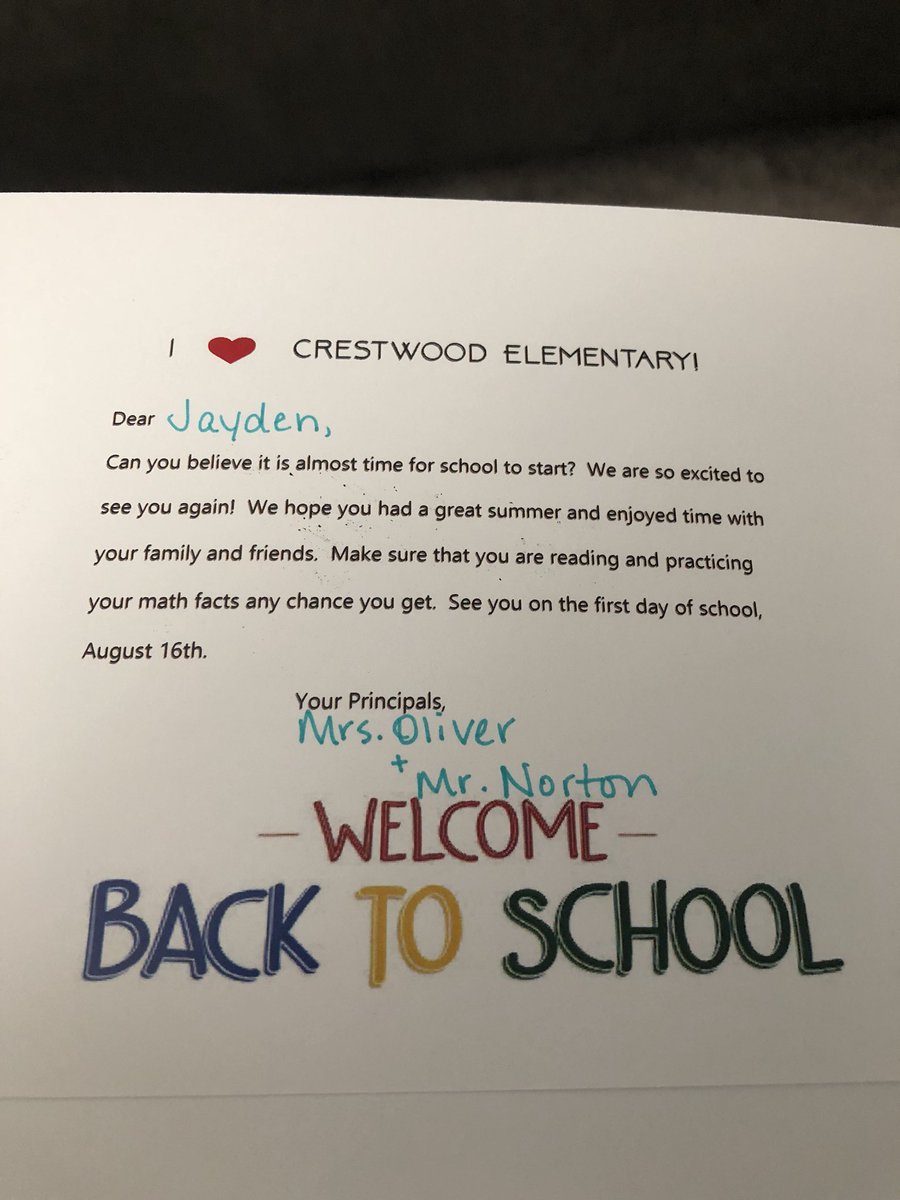 I ❤ CRESTWOOD ELEMENTARY!
Dear Jayden,
Can you believe it is almost time for school to start? We are so excited to
see you again! We hope you had a great summer and enjoyed time with
your family and friends. Make sure that you are reading and practicing
your math facts any chance you get. See you on the first day of school,
August 16th.
Your Principals,
Mrs. Oliver
+ Mr. Norton
- WELCOME -
BACK TO SCHOOL